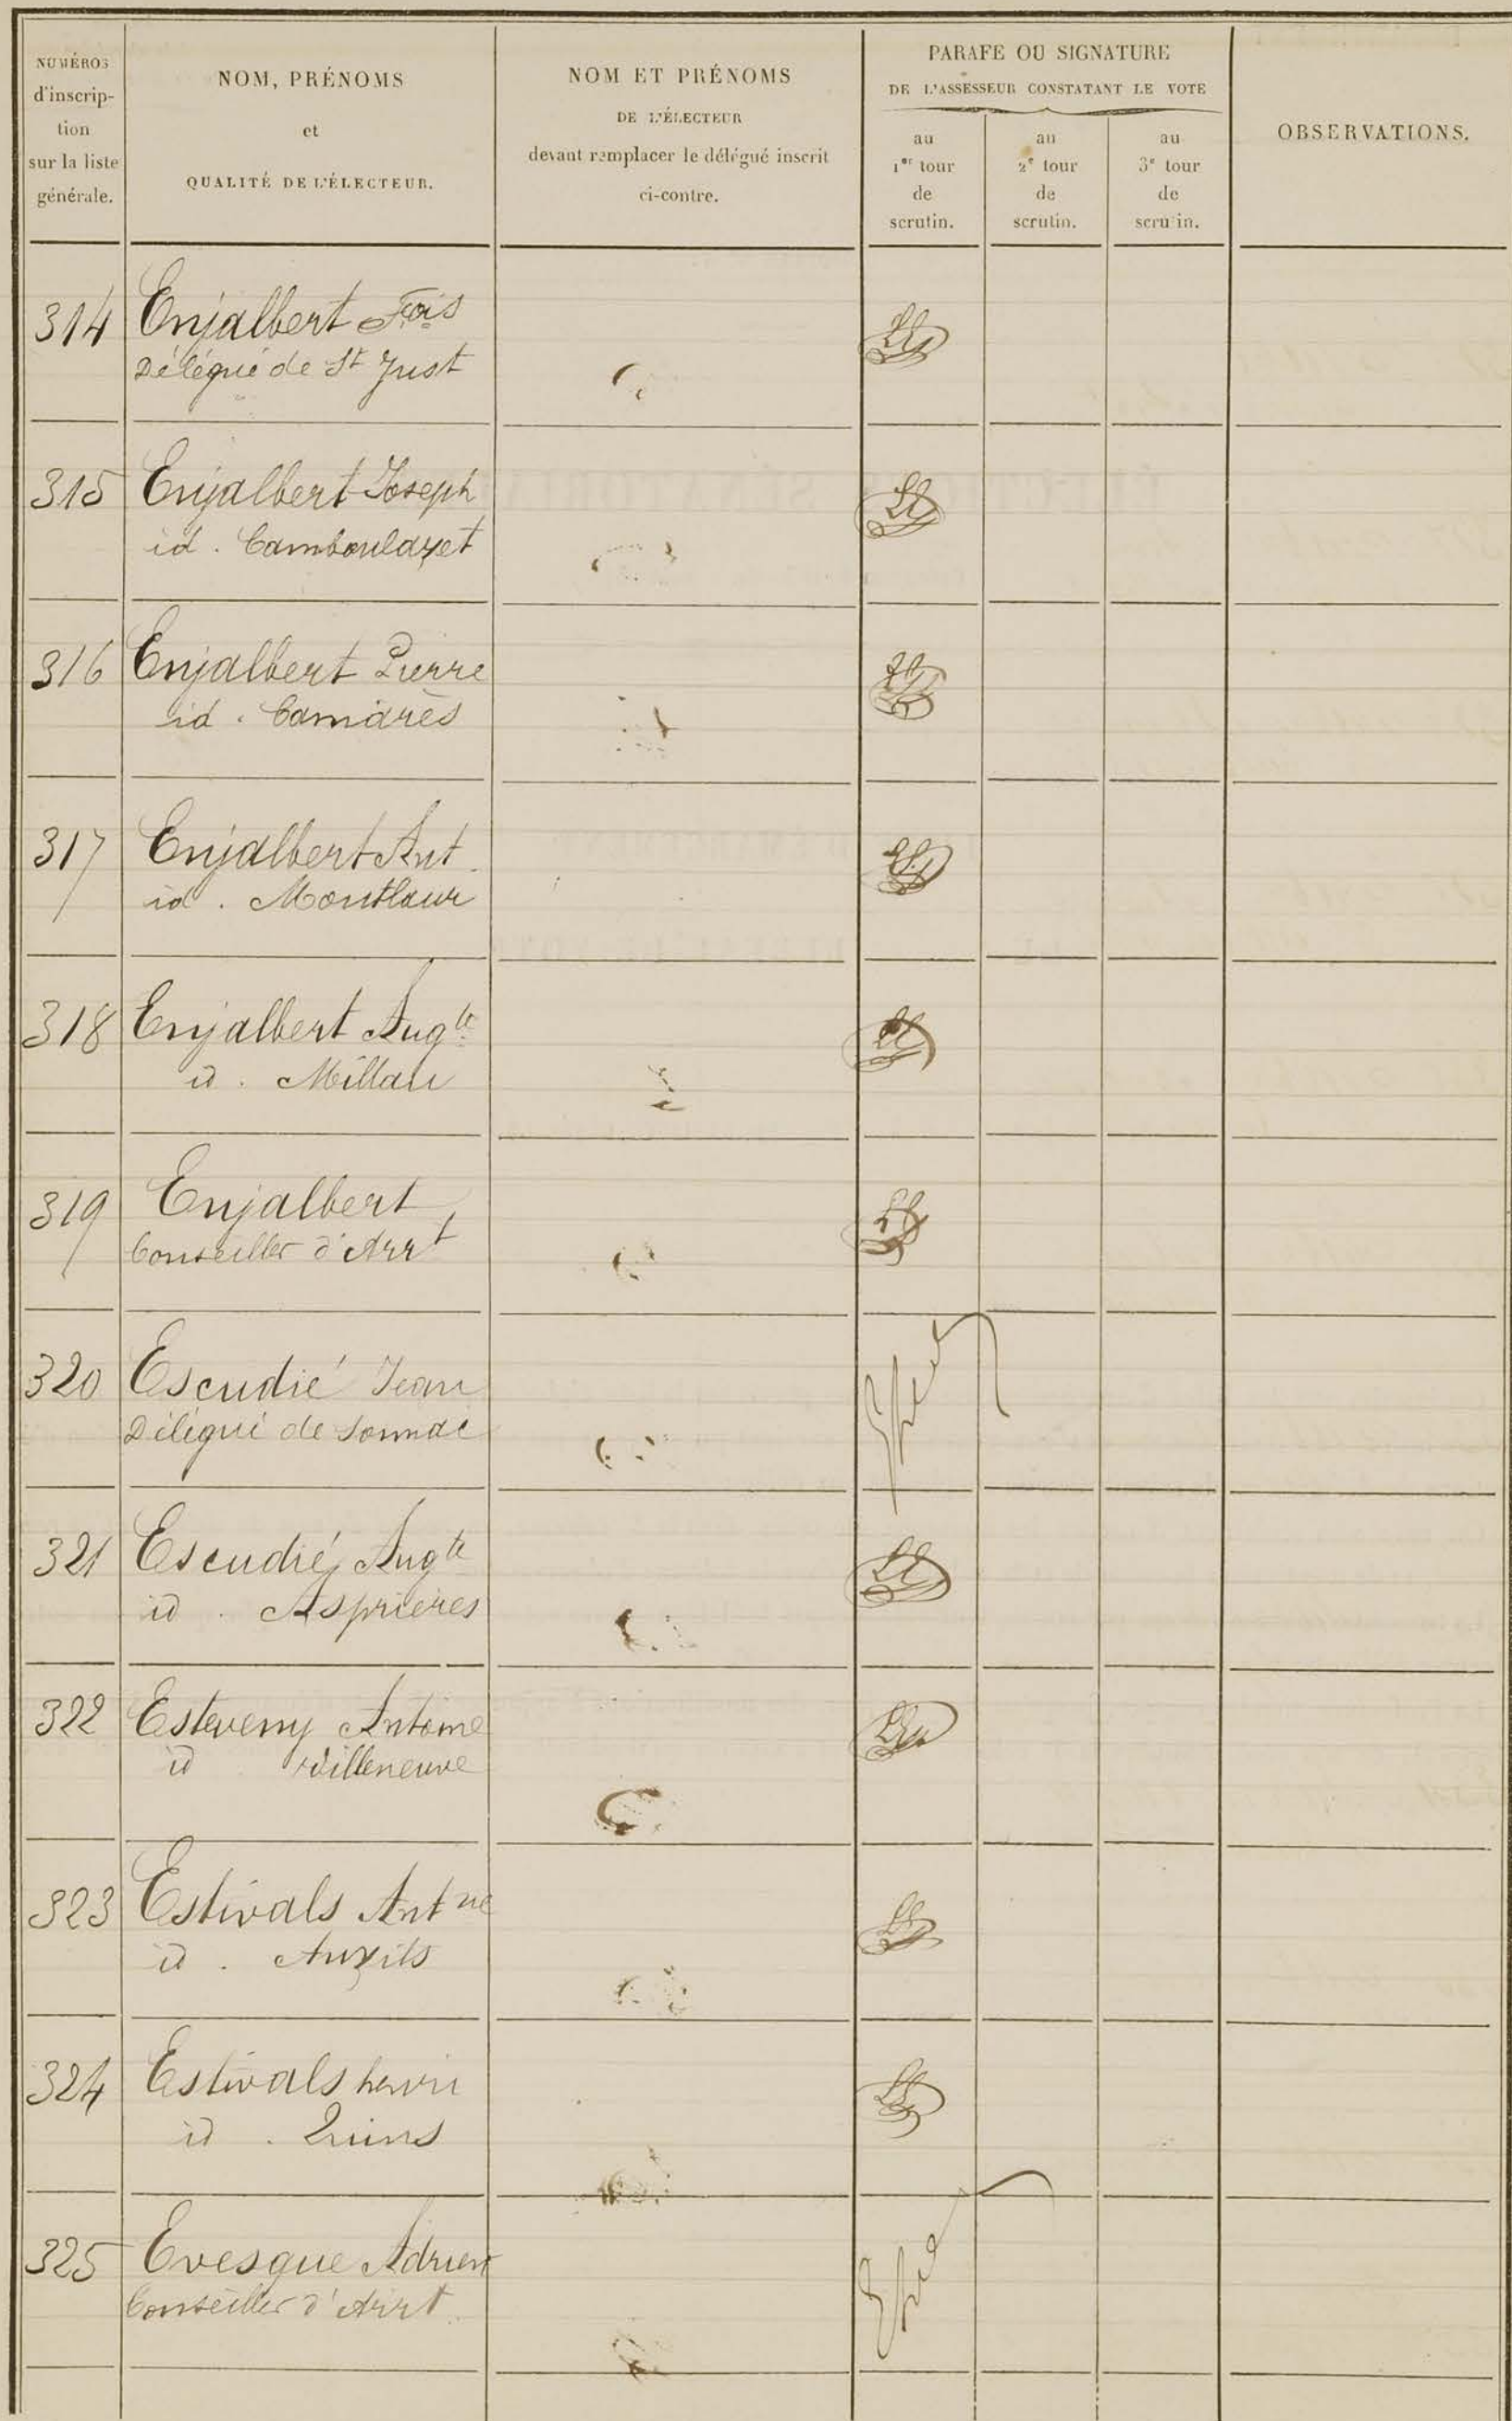 NUMÉROS
d'inscrip-
tion
sur la liste
générale.
NOM, PRÉNOMS
et
QUALITÉ DE L'ÉLECTEUR.
NOM ET PRÉNOMS
DE L'ÉLECTEUR
devant remplacer le délégué inscrit
ci-contre.
PARAFE OU SIGNATURE
DE L'ASSESSEUR CONSTATANT LE VOTE
au
1er tour
de
scrutin.
au
2e tour
de
scrutin.
au
3e tour
de
scrutin.
OBSERVATIONS.
314 Enjalbert Fois
Délégué de St Just
315 Enjalbert Joseph
id. Camboulazet
316 Enjalbert Pierre
id. Camarès
317 Enjalbert Ant.
id. Montlaur
318 Enjalbert Augte
id. Millau
319 Enjalbert
Conseiller d'Arrt
320 Escudié Jean
Délégué de Sonnac
321 Escudié Augte
id. Asprières
322 Esteveny Antoine
id Villeneuve
323 Estivals Antne
id. Auzits
324 Estivals henri
id. Quins
325 Evesque Adrien
Conseiller d'Arrt.